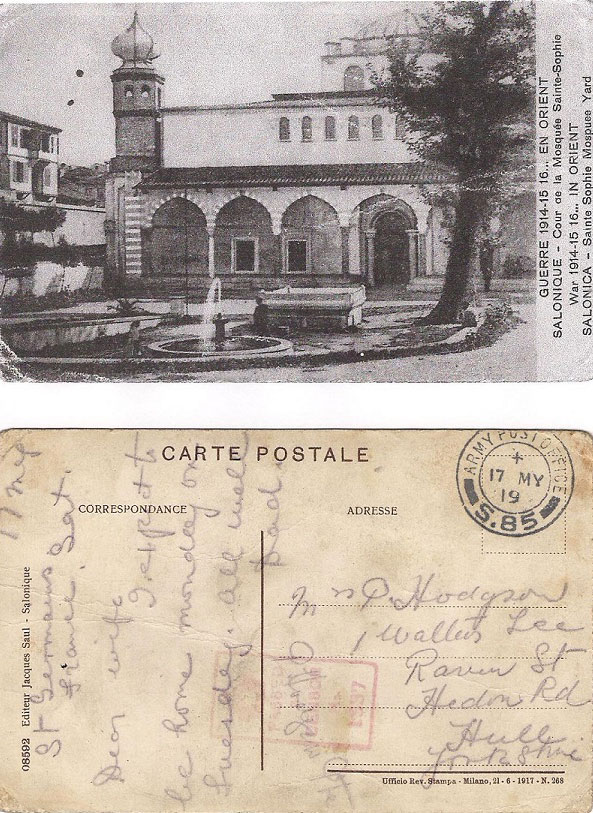 GUERRE 1914-15 16... EN ORIENT
SALONIQUE - Cour de la Mosquée Sainte-Sophie
War 1914-15 16... IN ORIENT
SALONICA - Sainte Sophie Mospuee Yard
CARTE POSTALE
CORRESPONDANCE
ADRESSE
ARMY POST OFFICE
17 MY
19
S.85
08592 Editeur Jacques Saul - Salonique
17 May
St Germains
France. Sat.
Dear wife
I expect to
be home monday or
Tuesday. All well
Dad.
Mrs P. Hodgson
1 Wallis Lee
Raven St
Hedon Rd
Hull
Yorkshire
Ufficio Rev. Stampa - Milano, 21 - 6 - 1917 - N. 268